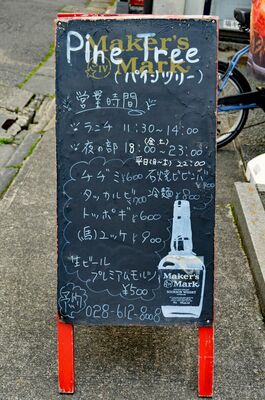 Pine Tree
Maker's
SIV Mark
(パインツリー)
営業時間
ランチ 11:30~14:00
夜の部 18:00~23:00
(金土)
平日(日~土) 22:00
チヂミ ¥600 石焼ビビンバ
タッカルビ 冷麺 ¥800
トッポギ ¥600
(馬)ユッケ ¥900
生ビール
プレミアムモルツ
¥500
Maker's
Mark
028-612-8008